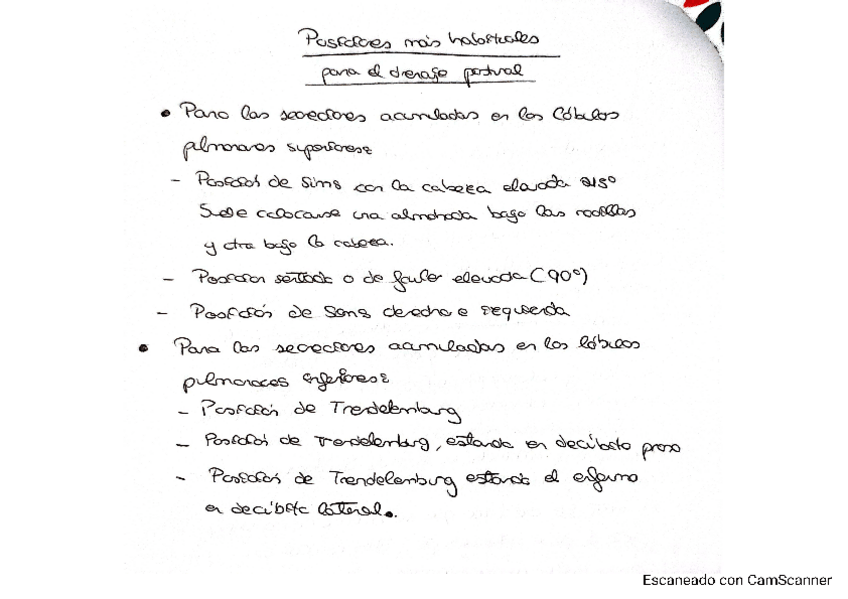 Posiciones más habituales
para el drenaje postural
• Para las secreciones acumuladas en los lóbulos
pulmonares superiores:
- Posición de Sims con la cabeza elevada 45º
Suele colocarse una almohada bajo las rodillas
y otra bajo la cabeza.
- Posición sentada o de fowler elevada (90º)
- Posición de Sims derecha e izquierda
• Para las secreciones acumuladas en los lóbulos
pulmonares inferiores:
- Posición de Trendelemburg
- Posición de Trendelemburg, estando en decúbito prono
- Posición de Trendelemburg estando el enfermo
en decúbito lateral.
Escaneado con CamScanner